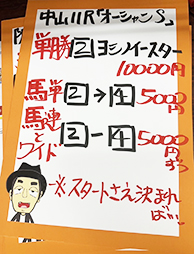 中山11R「オーシャンS」
単勝②ヨシノイースター
10000円
馬単②→④5000円
馬連とワイド②ー④5000円ずつ
※スタートさえ決まれば…